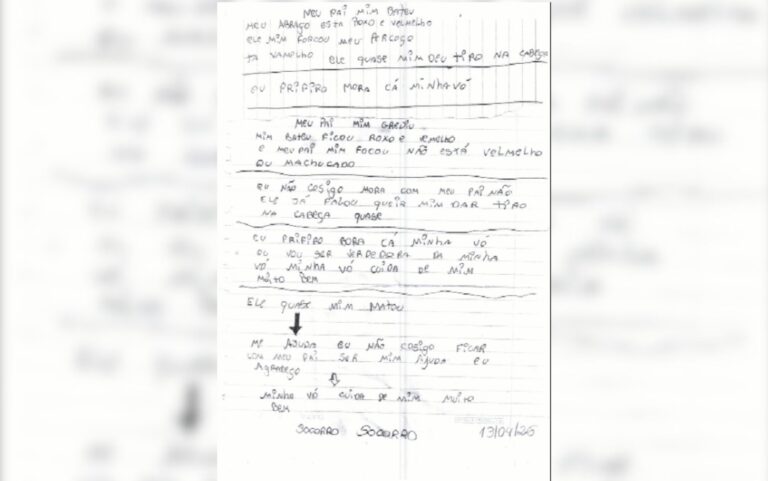 MEU PAI MIM BATEU
MEU ABRAÇO ESTA ROXO E VERMELHO
ELE MIM FORCOU MEU PERCOÇO
TA VAMELHO ELE QUASE MIM DEU TIRO NA CABEÇA
EU PRIFIRO MORA CÁ MINHA VÓ
MEU PAI MIM GREDIU
MIM BATEU FICOU ROXO E VEMELHO
E MEU PAI MIM FOCOU NÃO ESTÁ VELMELHO
OU MACHUCADO
EU NÃO COSIGO MORA COM MEU PAI NÃO
ELE JÁ FALOU QUEIA MIM DAR TIRO
NA CABEÇA QUASE
EU PRIFIRO BORA CÁ MINHA VÓ
OU VOU SER VERDEDEIRA DA MINHA
VÓ MINHA VÓ CUIDA DE MIM
MUITO BEM
ELE QUASE MIM MATOU
ME AJUDA EU NÃO COSIGO FICAR
COM MEU PAI SER MIM AJUDA EU
AGRADEÇO
MINHA VÓ CUIDA DE MIM MUITO
BEM
SOCORRO SOCORRO 13/04/26